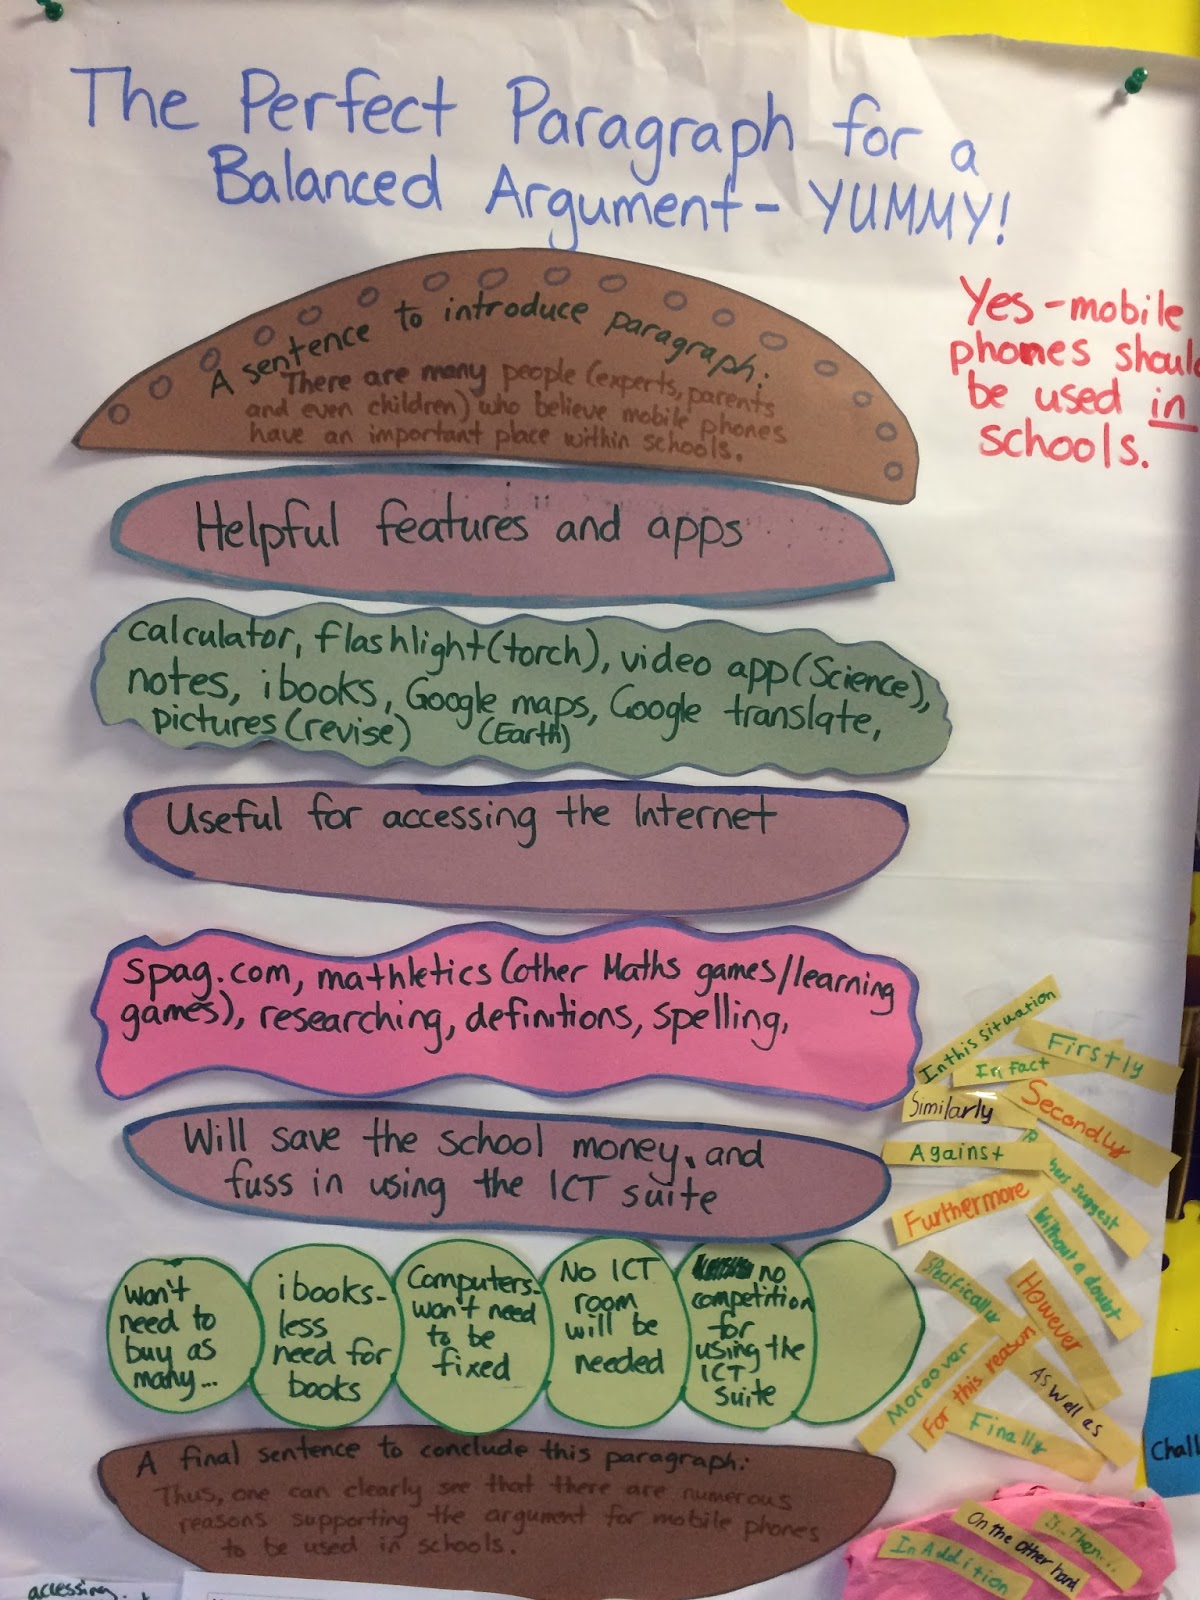 The Perfect Paragraph for a
Balanced Argument - YUMMY!
Yes - mobile
phones should
be used in
schools.
A sentence to introduce paragraph:
There are many people (experts, parents
and even children) who believe mobile phones
have an important place within schools.
Helpful features and apps
calculator, flashlight (torch), video app (Science),
notes, ibooks, Google maps, Google translate,
pictures (revise) (Earth)
Useful for accessing the Internet
spag.com, mathletics (other Maths games/learning
games), researching, definitions, spelling,
Will save the school money, and
fuss in using the ICT suite
won't
need to
buy as
many...
ibooks-
less
need for
books
Computers-
won't need
to be
fixed
No ICT
room
will be
needed
no
competition
for
using the
ICT
suite
A final sentence to conclude this paragraph:
Thus, one can clearly see that there are numerous
reasons supporting the argument for mobile phones
to be used in schools.
In this situation
Firstly
In fact
Similarly
Secondly
Against
suggest
Furthermore
Without a doubt
Specifically
However
Moreover
For this reason
As well as
Finally
Chall
If...Then...
On the other hand
In Addition
accessing